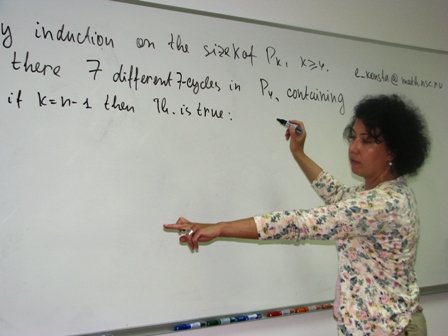 y induction on the size k of Pk, k≥4.
there 7 different 7-cycles in P4, containing
if k=n-1 then Th. is true:
e_konsta@math.nsc.ru